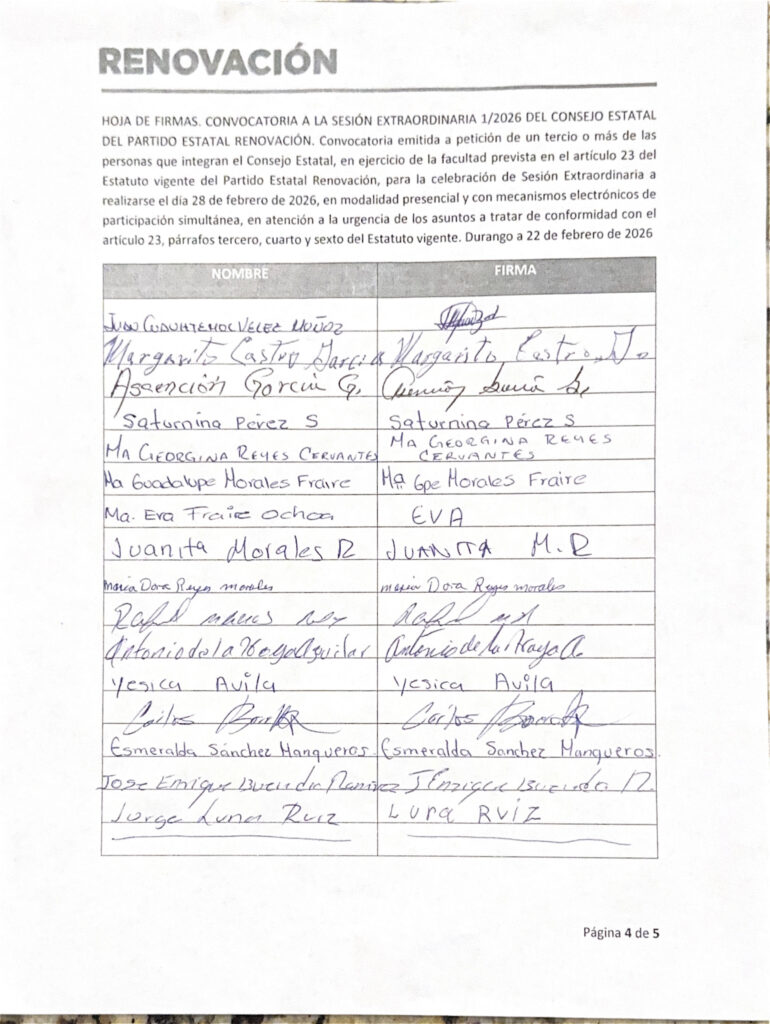 RENOVACIÓN
HOJA DE FIRMAS. CONVOCATORIA A LA SESIÓN EXTRAORDINARIA 1/2026 DEL CONSEJO ESTATAL
DEL PARTIDO ESTATAL RENOVACIÓN. Convocatoria emitida a petición de un tercio o más de las
personas que integran el Consejo Estatal, en ejercicio de la facultad prevista en el artículo 23 del
Estatuto vigente del Partido Estatal Renovación, para la celebración de Sesión Extraordinaria a
realizarse el día 28 de febrero de 2026, en modalidad presencial y con mecanismos electrónicos de
participación simultánea, en atención a la urgencia de los asuntos a tratar de conformidad con el
artículo 23, párrafos tercero, cuarto y sexto del Estatuto vigente. Durango a 22 de febrero de 2026
NOMBRE FIRMA
JUAN CUAUHTEMOC VELEZ MUÑOZ
Margarito Castro Garcia Margarito Castro G.
Ascención García G.
Saturnina Pérez S Saturnina Pérez S
MA GEORGINA REYES CERVANTES MA GEORGINA REYES
CERVANTES
Ma Guadalupe Morales Fraire Ma Gpe Morales Fraire
Ma. Eva Fraire Ochoa EVA
Juanita Morales R JUANITA M. R
maria Dora Reyes morales maria Dora Reyes morales
Rafael
Antonio de la Aguilar Antonio de la A.
Yesica Avila Yesica Avila
Carlos Carlos
Esmeralda Sánchez Manqueros. Esmeralda Sanchez Manqueros.
Jose Enrique Buendia Ramirez J Enrique Buendia R.
Jorge Luna Ruiz LUNA RUIZ
Página 4 de 5